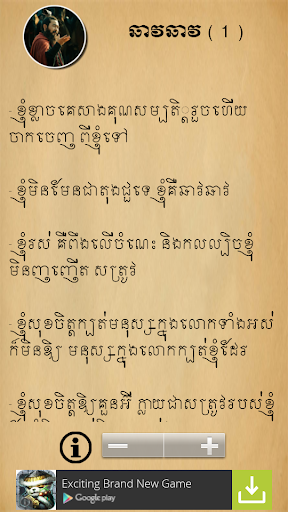 ឆាវឆាវ ( 1 )
- ខ្ញុំខ្លាចគេសាងគុណសម្បតិ្តរួចហើយ
ចាកចេញ ពីខ្ញុំទៅ
- ខ្ញុំមិនមែនជាតុងជួទេ ខ្ញុំគឺឆាវឆាវ
- ខ្ញុំរស់ គឺពឹងលើចំណេះ និងកលល្បិចខ្ញុំ
មិនញញើត សត្រូវ
- ខ្ញុំសុខចិត្តក្បត់មនុស្សក្នុងលោកទាំងអស់
ក៏មិនឱ្យ មនុស្សក្នុងលោកក្បត់ខ្ញុំដែរ
- ខ្ញុំសុខចិត្តឱ្យគួនអី ក្លាយជាសត្រូវរបស់ខ្ញុំ
Exciting Brand New Game
Google play